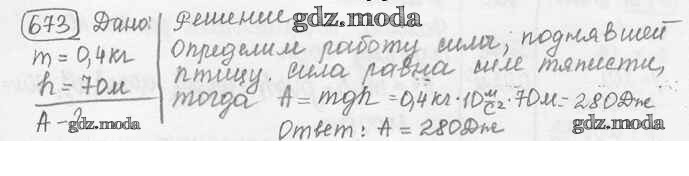 673 Дано: Решение
gdz.moda
m = 0,4кг Определим работу силы, поднявшей
h = 70м птицу. Сила равна силе тяжести,
gdz.moda
тогда A = mgh = 0,4кг·10 м/с²·70м = 280Дж
A - ?
gdz.moda gdz.moda
Ответ: A = 280Дж